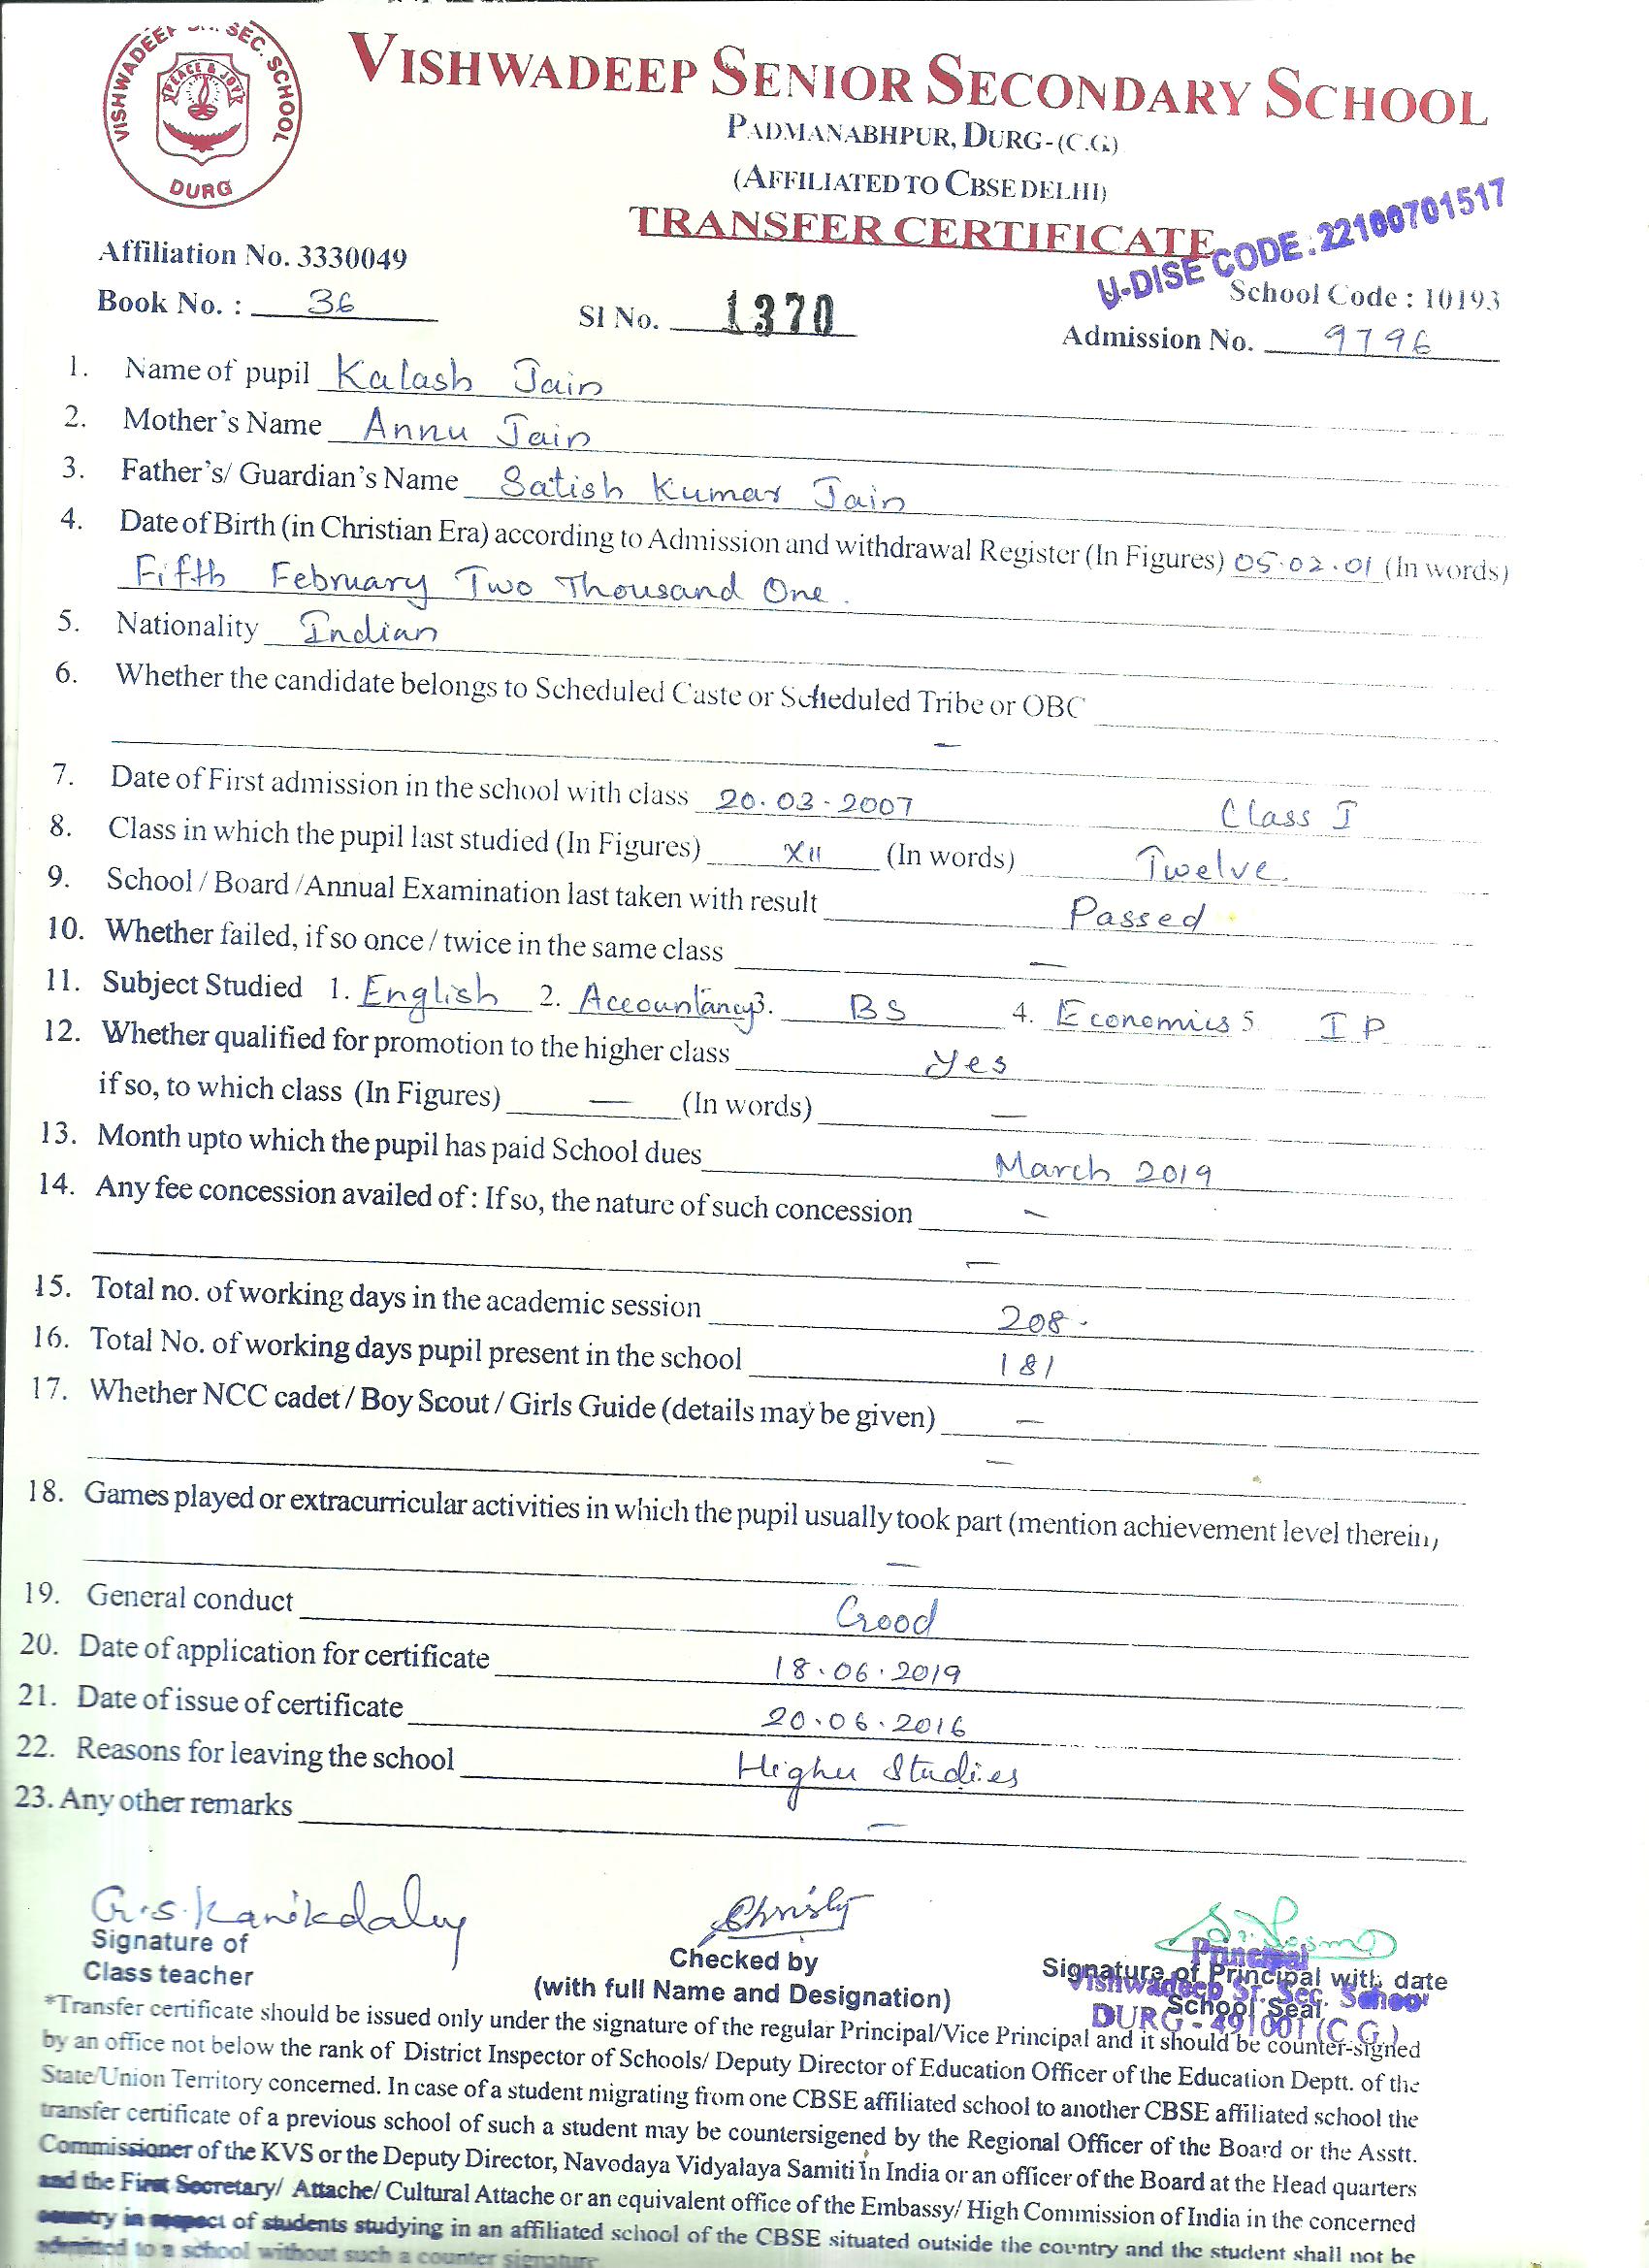 VISHWADEEP SR. SEC. SCHOOL
PEACE & JOY
DURG
VISHWADEEP SENIOR SECONDARY SCHOOL
PADMANABHPUR, DURG-(C.G)
(AFFILIATED TO CBSE DELHI)
TRANSFER CERTIFICATE
U-DISE CODE: 22100701517
Affiliation No. 3330049
School Code : 10193
Book No. : 36 Sl No. 1370 Admission No. 9796
1. Name of pupil Kalash Jain
2. Mother's Name Annu Jain
3. Father's/ Guardian's Name Satish Kumar Jain
4. Date of Birth (in Christian Era) according to Admission and withdrawal Register (In Figures) 05.02.01 (In words)
Fifth February Two Thousand One.
5. Nationality Indian
6. Whether the candidate belongs to Scheduled Caste or Scheduled Tribe or OBC
–
7. Date of First admission in the school with class 20.03.2007 Class I
8. Class in which the pupil last studied (In Figures) XII (In words) Twelve.
9. School / Board /Annual Examination last taken with result Passed
10. Whether failed, if so once / twice in the same class —
11. Subject Studied 1. English 2. Accountancy 3. BS 4. Economics 5. IP
12. Whether qualified for promotion to the higher class Yes
if so, to which class (In Figures) — (In words) —
13. Month upto which the pupil has paid School dues March 2019
14. Any fee concession availed of : If so, the nature of such concession –
—
15. Total no. of working days in the academic session 208.
16. Total No. of working days pupil present in the school 181
17. Whether NCC cadet / Boy Scout / Girls Guide (details may be given) —
—
18. Games played or extracurricular activities in which the pupil usually took part (mention achievement level therein)
—
19. General conduct Good
20. Date of application for certificate 18.06.2019
21. Date of issue of certificate 20.06.2016
22. Reasons for leaving the school Higher Studies
23. Any other remarks —
Christy
Signature of
Class teacher
Checked by
(with full Name and Designation)
Signature of Principal with date
School Seal
Principal
Vishwadeep Sr. Sec. School
DURG - 491001 (C.G.)
*Transfer certificate should be issued only under the signature of the regular Principal/Vice Principal and it should be counter-signed
by an office not below the rank of District Inspector of Schools/ Deputy Director of Education Officer of the Education Deptt. of the
State/Union Territory concerned. In case of a student migrating from one CBSE affiliated school to another CBSE affiliated school the
transfer certificate of a previous school of such a student may be countersigened by the Regional Officer of the Board or the Asstt.
Commissioner of the KVS or the Deputy Director, Navodaya Vidyalaya Samiti in India or an officer of the Board at the Head quarters
and the First Secretary/ Attache/ Cultural Attache or an equivalent office of the Embassy/ High Commission of India in the concerned
country in respect of students studying in an affiliated school of the CBSE situated outside the country and the student shall not be
admitted to a school without such a counter signature